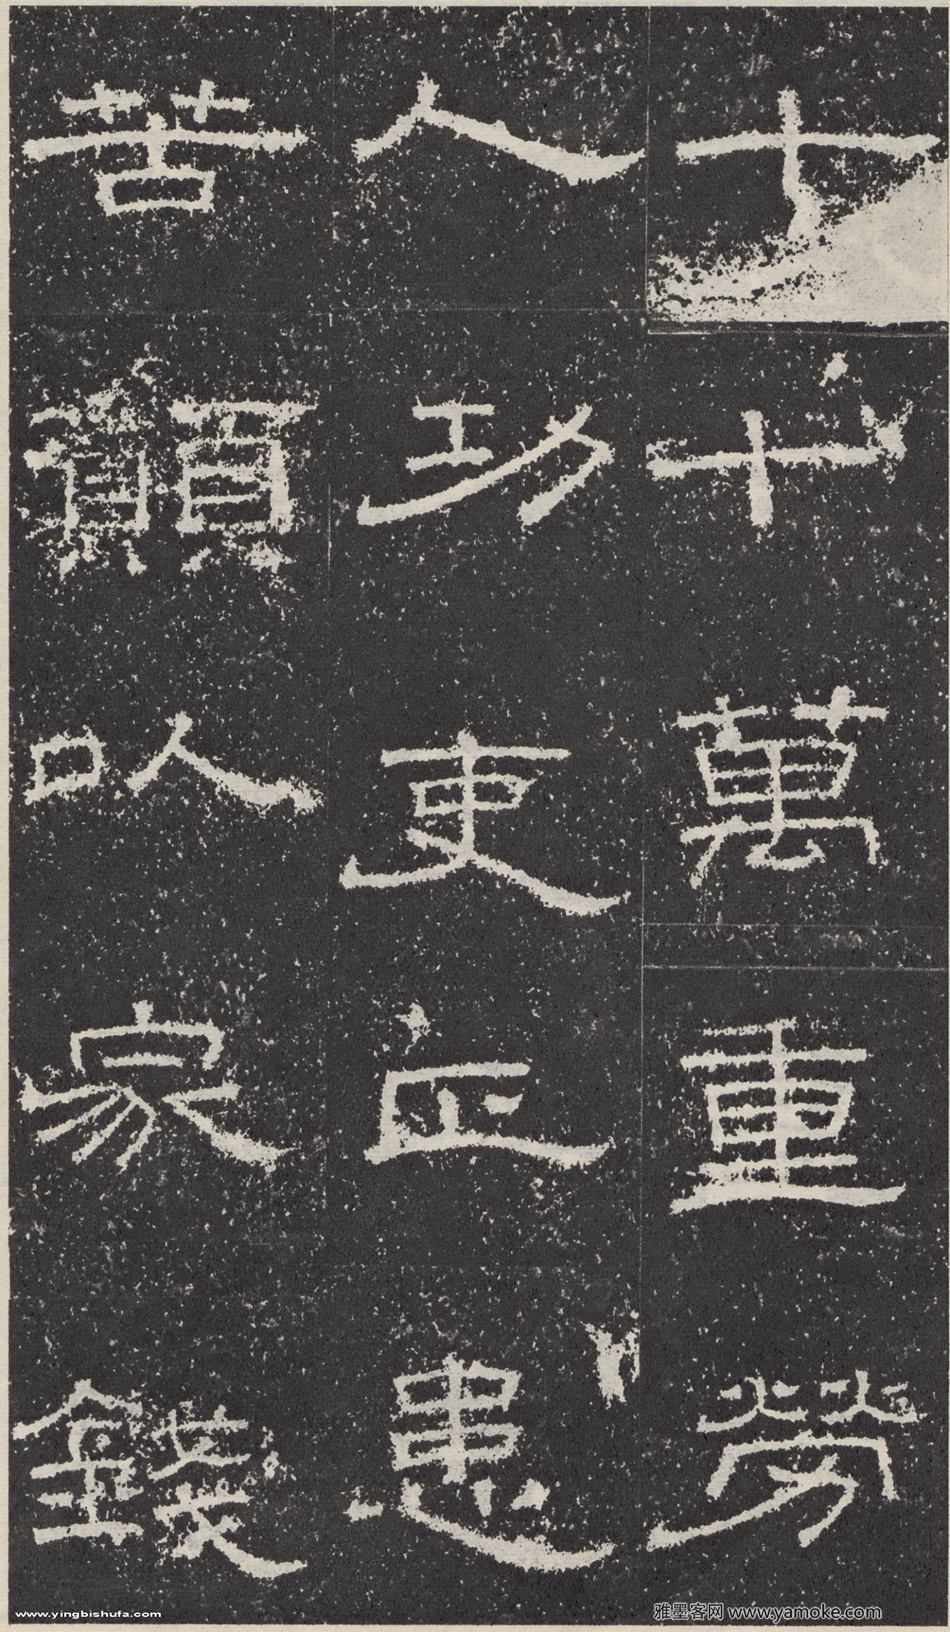 七十萬重勞
人功吏正患
苦願以家錢
www.yingbishufa.com
雅墨客网 www.yamoke.com